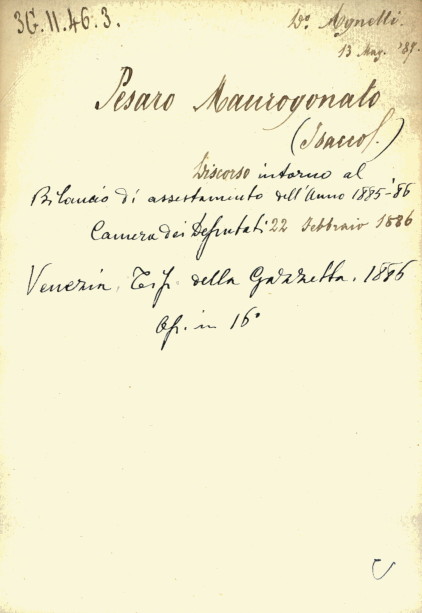 3G.II.46.3.
Do. Agnelli.
13 Mag. '89.
Pesaro Maurogonato
(Isacco)
Discorso intorno al
Bilancio di assestamento dell'Anno 1885-'86
Camera dei Deputati 22 Febbraio 1886
Venezia, Tip. della Gazzetta, 1886
Op. in 16°